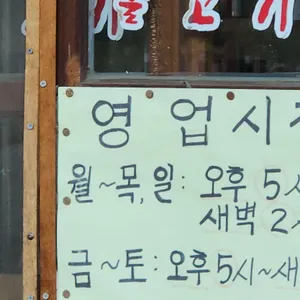 영 업 시
월~목,일: 오후 5시
새벽 2
금~토: 오후5시~새